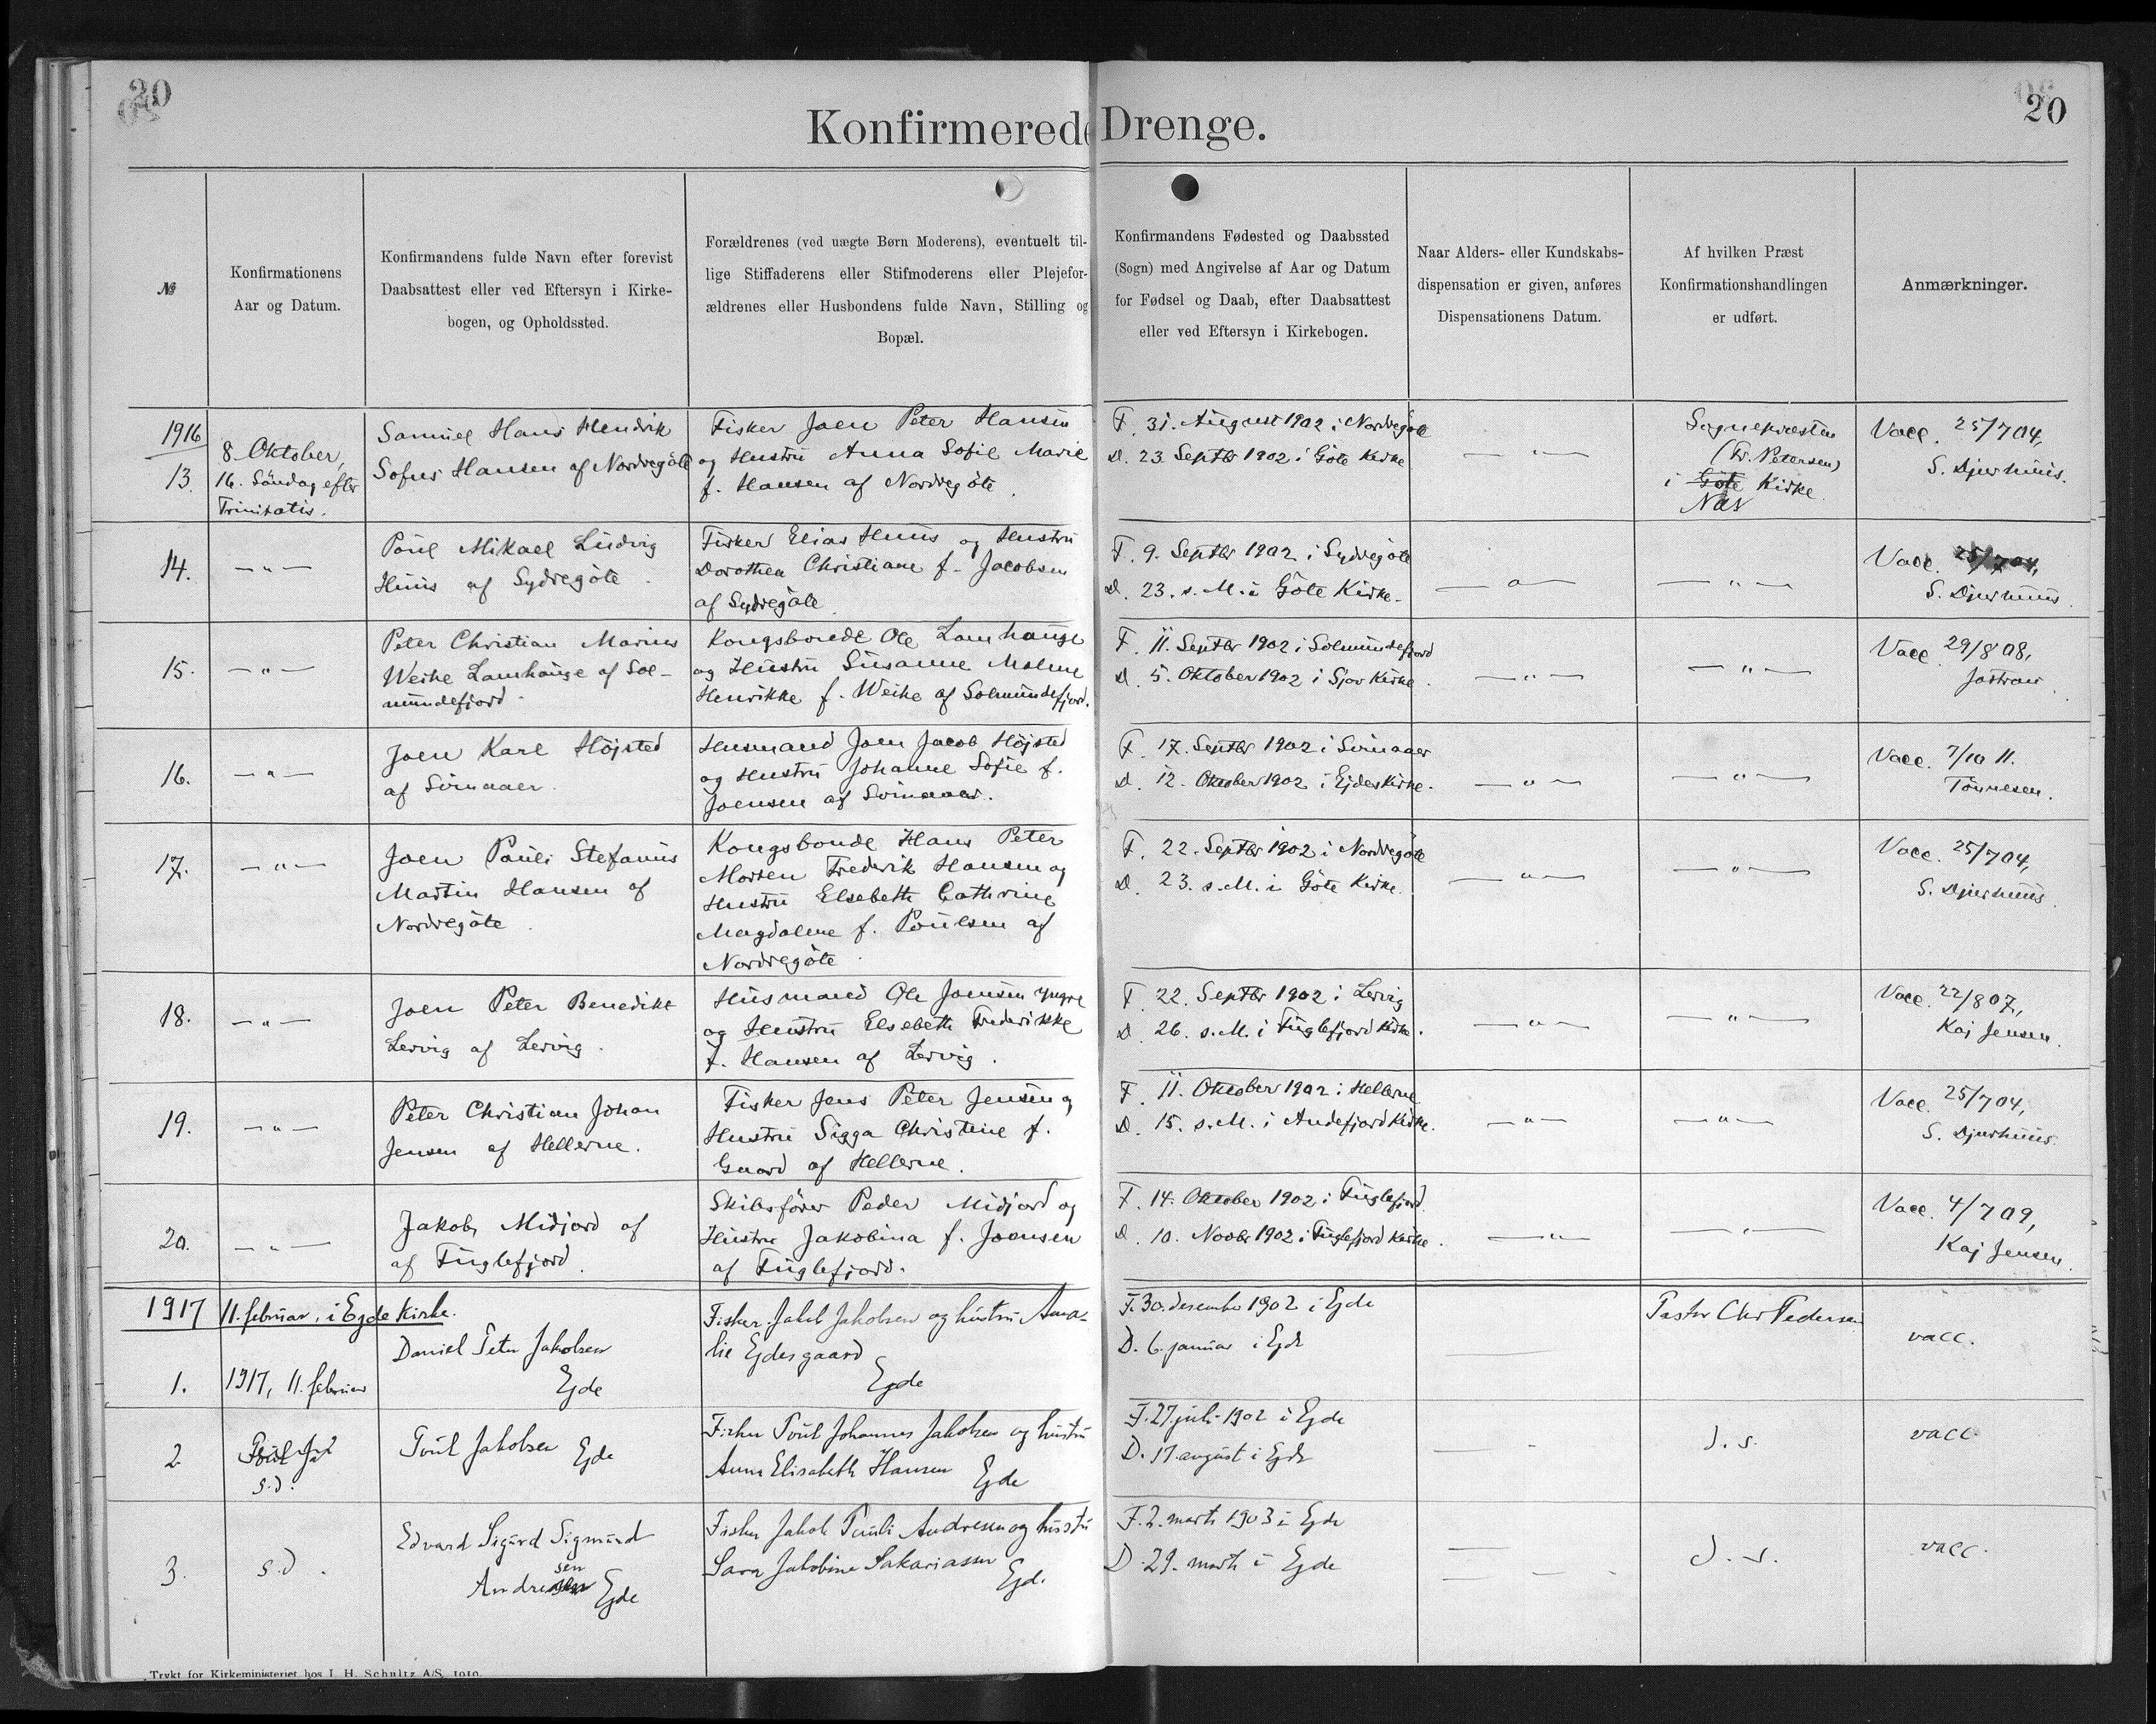 20
20
Konfirmerede Drenge.
№
Konfirmationens
Aar og Datum.
Konfirmandens fulde Navn efter forevist
Daabsattest eller ved Eftersyn i Kirke-
bogen, og Opholdssted.
Forældrenes (ved uægte Børn Moderens), eventuelt til-
lige Stiffaderens eller Stifmoderens eller Plejefor-
ældrenes eller Husbondens fulde Navn, Stilling og
Bopæl.
Konfirmandens Fødested og Daabssted
(Sogn) med Angivelse af Aar og Datum
for Fødsel og Daab, efter Daabsattest
eller ved Eftersyn i Kirkebogen.
Naar Alders- eller Kundskabs-
dispensation er given, anføres
Dispensationens Datum.
Af hvilken Præst
Konfirmationshandlingen
er udført.
Anmærkninger.
1916
13.
8. Oktober,
16. Söndag efter
Trinitatis.
Samuel Hans Hendrik
Sofus Hansen af Nordregöte
Fisker Joen Peter Hansen
og Hustru Anna Sofie Marie
f. Hansen af Nordregöte.
F. 31. August 1902 i Nordregöte
D. 23. Septbr 1902 i Göte Kirke
— " —
Sognepræsten
(Fr. Petersen)
i Göte Kirke.
Næs
Vacc. 25/7 04,
S. Djurhuus.
14.
— " —
Poul Mikael Ludvig
Huus af Sydregöte.
Fisker Elias Huus og Hustru
Dorothea Christiane f. Jacobsen
af Sydregöte.
F. 9. Septbr 1902 i Sydregöte
D. 23. s. M. i Göte Kirke.
— " —
— " —
Vacc. 25/7 04,
S. Djurhuus.
15.
— " —
Peter Christian Marius
Weihe Lamhauge af Sol-
mundefjord.
Kongsbonde Ole Lamhauge
og Hustru Susanne Malene
Henrikke f. Weihe af Solmundefjord.
F. 11. Septbr 1902 i Solmundefjord
D. 5. Oktober 1902 i Sjov Kirke.
— " —
— " —
Vacc. 29/8 08,
16.
— " —
Joen Karl Höjsted
af Svinaaer.
Husmand Joen Jacob Höjsted
og Hustru Johanne Sofie f.
Joensen af Svinaaer.
F. 17. Septbr 1902 i Svinaaer
D. 12. Oktober 1902 i Ejdes Kirke.
— " —
— " —
Vacc. 7/10 11.
Tönnesen.
17.
— " —
Joen Pauli Stefanus
Martin Hansen af
Nordregöte.
Kongsbonde Hans Peter
Morten Frederik Hansen og
Hustru Elsebeth Cathrine
Magdalene f. Poulsen af
Nordregöte.
F. 22. Septbr 1902 i Nordregöte
D. 23. s. M. i Göte Kirke.
— " —
— " —
Vacc. 25/7 04,
S. Djurhuus.
18.
— " —
Joen Peter Benedikt
Lervig af Lervig.
Husmand Ole Joensen yngre
og Hustru Elsebeth Frederikke
f. Hansen af Lervig.
F. 22. Septbr 1902 i Lervig
D. 26. s. M. i Fuglefjord Kirke.
— " —
— " —
Vacc. 22/8 07,
Kaj Jensen.
19.
— " —
Peter Christian Johan
Jensen af Hellerne.
Fisker Jens Peter Jensen og
Hustru Sigga Christine f.
Gaard af Hellerne.
F. 11. Oktober 1902 i Hellerne
D. 15. s. M. i Andefjord Kirke.
— " —
— " —
Vacc. 25/7 04,
S. Djurhuus.
20.
— " —
Jakob Midjord af
af Fuglefjord.
Skibsförer Peder Midjord og
Hustru Jakobina f. Joensen
af Fuglefjord.
F. 14. Oktober 1902 i Fuglefjord.
D. 10. Novbr 1902 i Fuglefjord Kirke.
— " —
— " —
Vacc. 4/7 09,
Kaj Jensen.
1917 11. februar, i Egde Kirke.
1.
1917, 11. februar
Daniel Peter Jakobsen
Ejde
Fisker Jakob Jakobsen og hustru Ama-
lie Ejdesgaard
Ejde
F. 30. desember 1902 i Ejde
D. 6. januar i Ejde
Pastor Chr Pedersen
vacc.
2
s.d.
Poul Jakobsen Ejde
Fisker Poul Johannes Jakobsen og hustru
Anna Elisabeth Hansen Ejde
F. 27. juli 1902 i Ejde
D. 17. august i Ejde
d. s.
vacc
3.
s.d.
Edvard Sigurd Sigmund
Andresen Ejde
Fisker Jakob Pauli Andresen og hustru
Sara Jakobine Sakariassen Ejde
F. 2. marts 1903 i Ejde
D. 29. marts i Ejde
d. s.
vacc.
Trykt for Kirkeministeriet hos J. H. Schultz A/S. 1910.